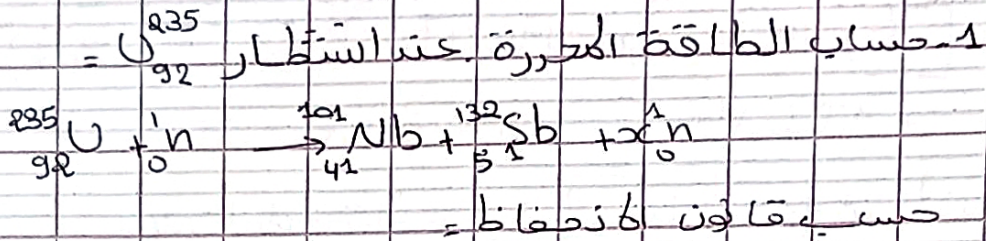 1- حساب الطاقة المحررة عند انشطار ²³⁵₉₂U =
²³⁵₉₂U + ¹₀n → ¹⁰¹₄₁Nb + ¹³²₅₁Sb + x ¹₀n
حسب قانون الانحفاظ =